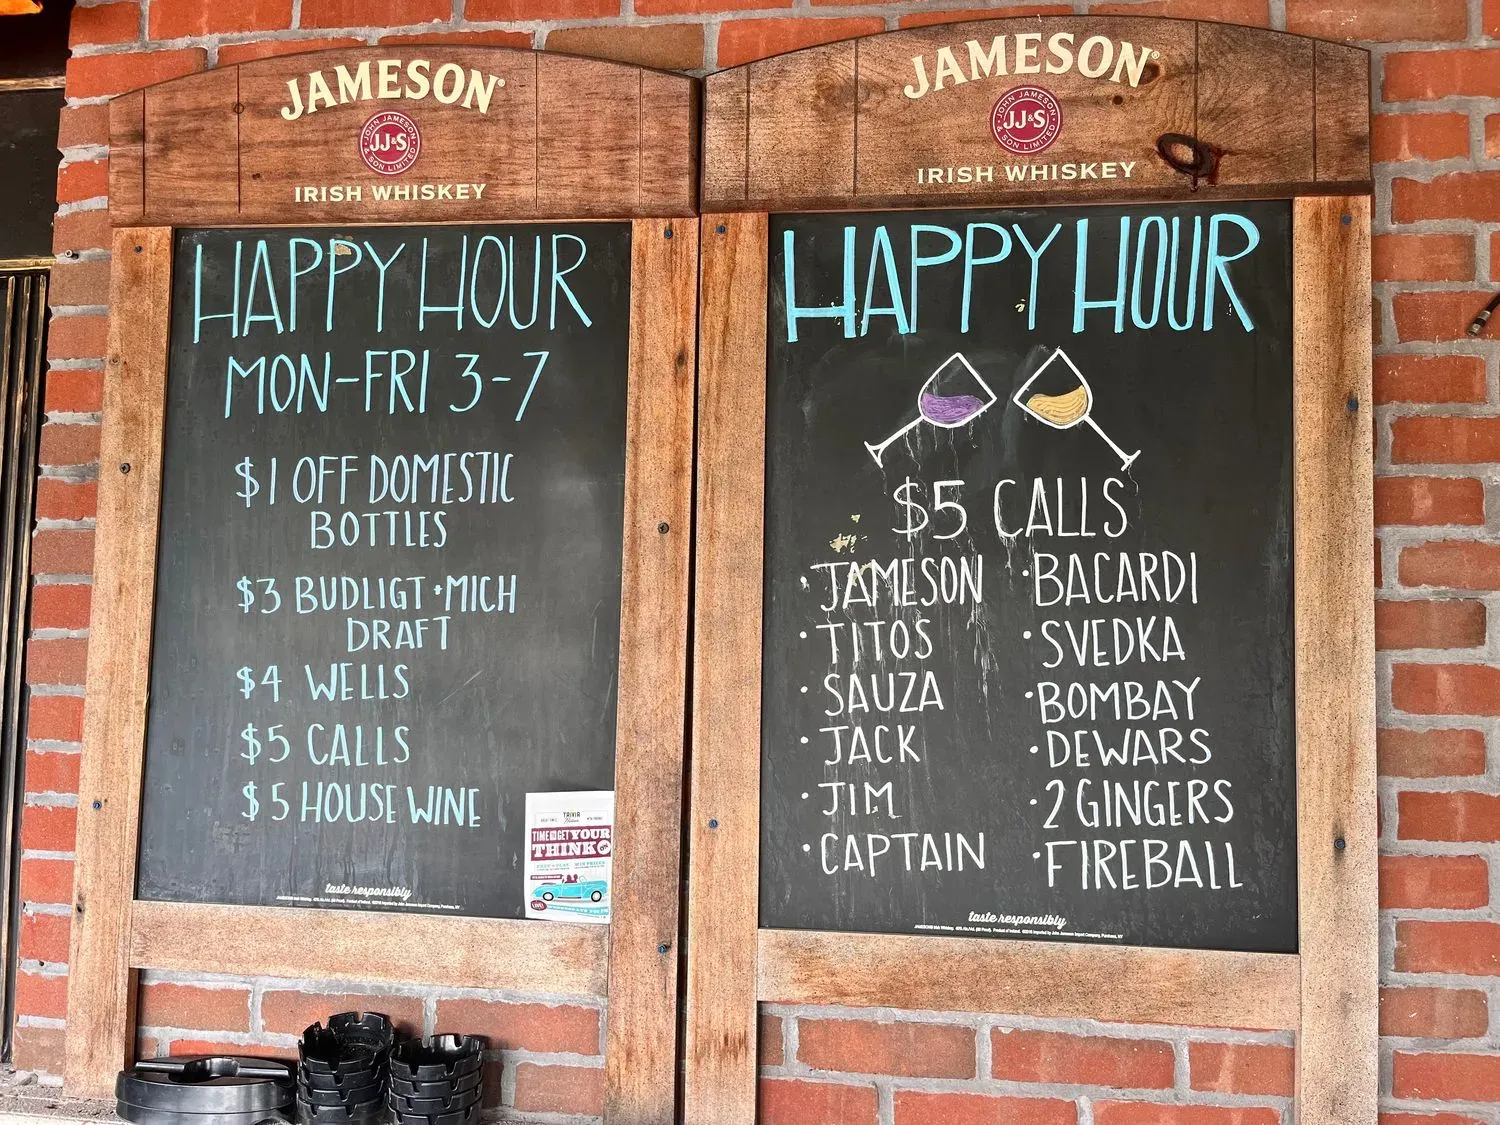 JAMESON®
JOHN JAMESON
JJ&S
& SON LIMITED
IRISH WHISKEY
HAPPY HOUR
MON-FRI 3-7
$1 OFF DOMESTIC
BOTTLES
$3 BUDLIGT + MICH
DRAFT
$4 WELLS
$5 CALLS
$5 HOUSE WINE
TRIVIA
TIME TO GET YOUR
THINK ON
taste responsibly
JAMESON®
JOHN JAMESON
JJ&S
& SON LIMITED
IRISH WHISKEY
HAPPY HOUR
$5 CALLS
• JAMESON
• TITOS
• SAUZA
• JACK
• JIM
• CAPTAIN
• BACARDI
• SVEDKA
• BOMBAY
• DEWARS
• 2 GINGERS
• FIREBALL
taste responsibly